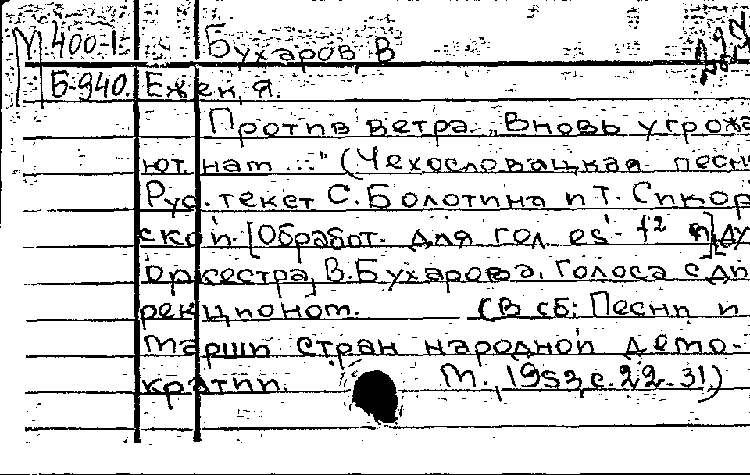 М 400-1 Бухаров, В
Б-940. Ежек, Я.
Против ветра. „Вновь угрожа
ют нам ..." (Чехословацкая песн
Рус. текст С. Болотина и Т. Сикор
ской. [Обработ. для гол es¹- f² и] ду
оркестра, В. Бухарова. Голоса с ди
рекционом. (В сб: Песни и
марши стран народной демо-
кратии. М., 1953, с. 22-31)